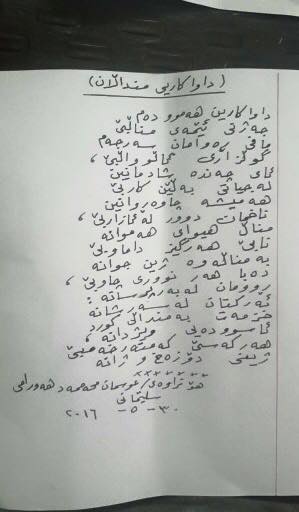 (داواکاریی منداڵان)
داواکارین هەموو دەم
جەژنی ئێمەی مناڵێ
مافی ڕەوامان سەرجەم
گوزاری
ئای چەندە شادمانین
لە ژیانی بەڵێن کاربێ
هەمیشە چاوەڕوانین
ناخمان دوور لە ئازاربێ،
مناڵ هیوای هەموانە
نابێ هەرگیز داماوبێ
بە مناڵەوە ژین جوانە
دەبا هەر نووری چاوبێ،
ڕوومان لە بەرپرسانە:
ئەرکتان لەسەرشانە
خزمەت بە منداڵی کورد
ئاسوودەیی ویژدانە،
هەرکەسێ کەمتەرخەمبێ
ژینی دۆزەخ و ژانە
هۆنراوەی/ عوسمان محەمەد هەورامی
سلێمانی
٣٠-٥-٢٠١٦